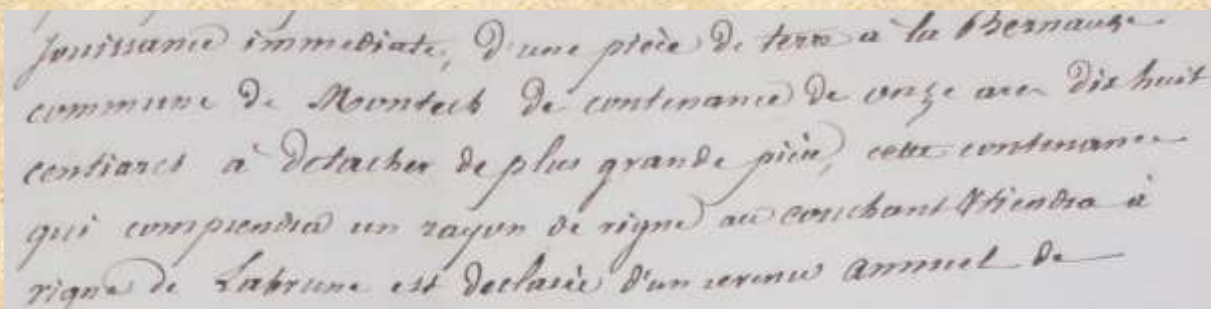 jouissance immediate, d'une pièce de terre à la Bernauze
commune de Montech de contenance de onze ares dix huit
centiares à détacher de plus grande pièce, cette contenance
qui comprendra un rayon de vigne au couchant & tiendra à
vigne de Labrune est declarée d'un revenu annuel de